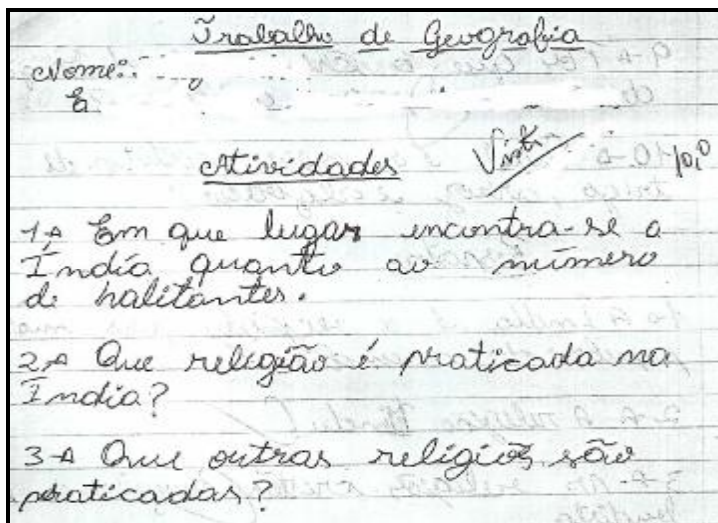 Trabalho de Geografia
Nome:
E
Atividades Visto 10,0
1-A Em que lugar encontra-se a
Índia quanto ao número
de halitantes.
2-A Que religião é praticada na
Índia?
3-A Que outras religiões são
praticadas?